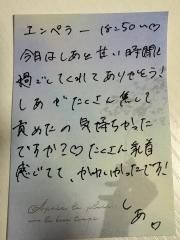 エンペラー 18:50〜♡
今日はしあと甘い時間
過ごしてくれてありがとう!
しあがたくさん焦して
責めたの気持ちかった
ですか?♡たくさん乳首
感じてて、かわいかったです!
しあ♡